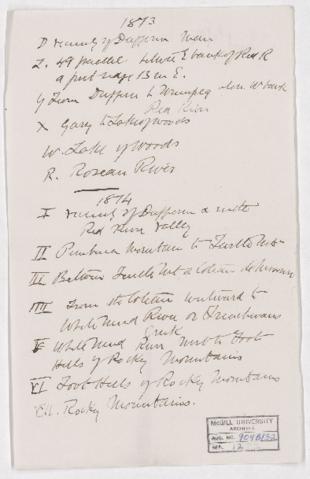 1873
D vicinity of Dufferin Man
Z. 49 parallel between E bank of Red R
a point range 13 m E.
Y From Dufferin to Winnipeg W bank
Red River
X Garry to Lake of woods
W. Lake of woods
R. Roseau River
1874
I vicinity of Dufferin &
Red River Valley
II Pembina Mountain to Turtle Mt
III Between Turtle Mt & Coteau de Missouri
IIII From the Coteau westward to
White Mud River or Frenchmans
Creek
V White Mud River to Foot
Hills of Rocky Mountains
VI Foot Hills of Rocky Mountains
VII. Rocky Mountains.
McGILL UNIVERSITY
ARCHIVES
ACC. NO.
REF. 12